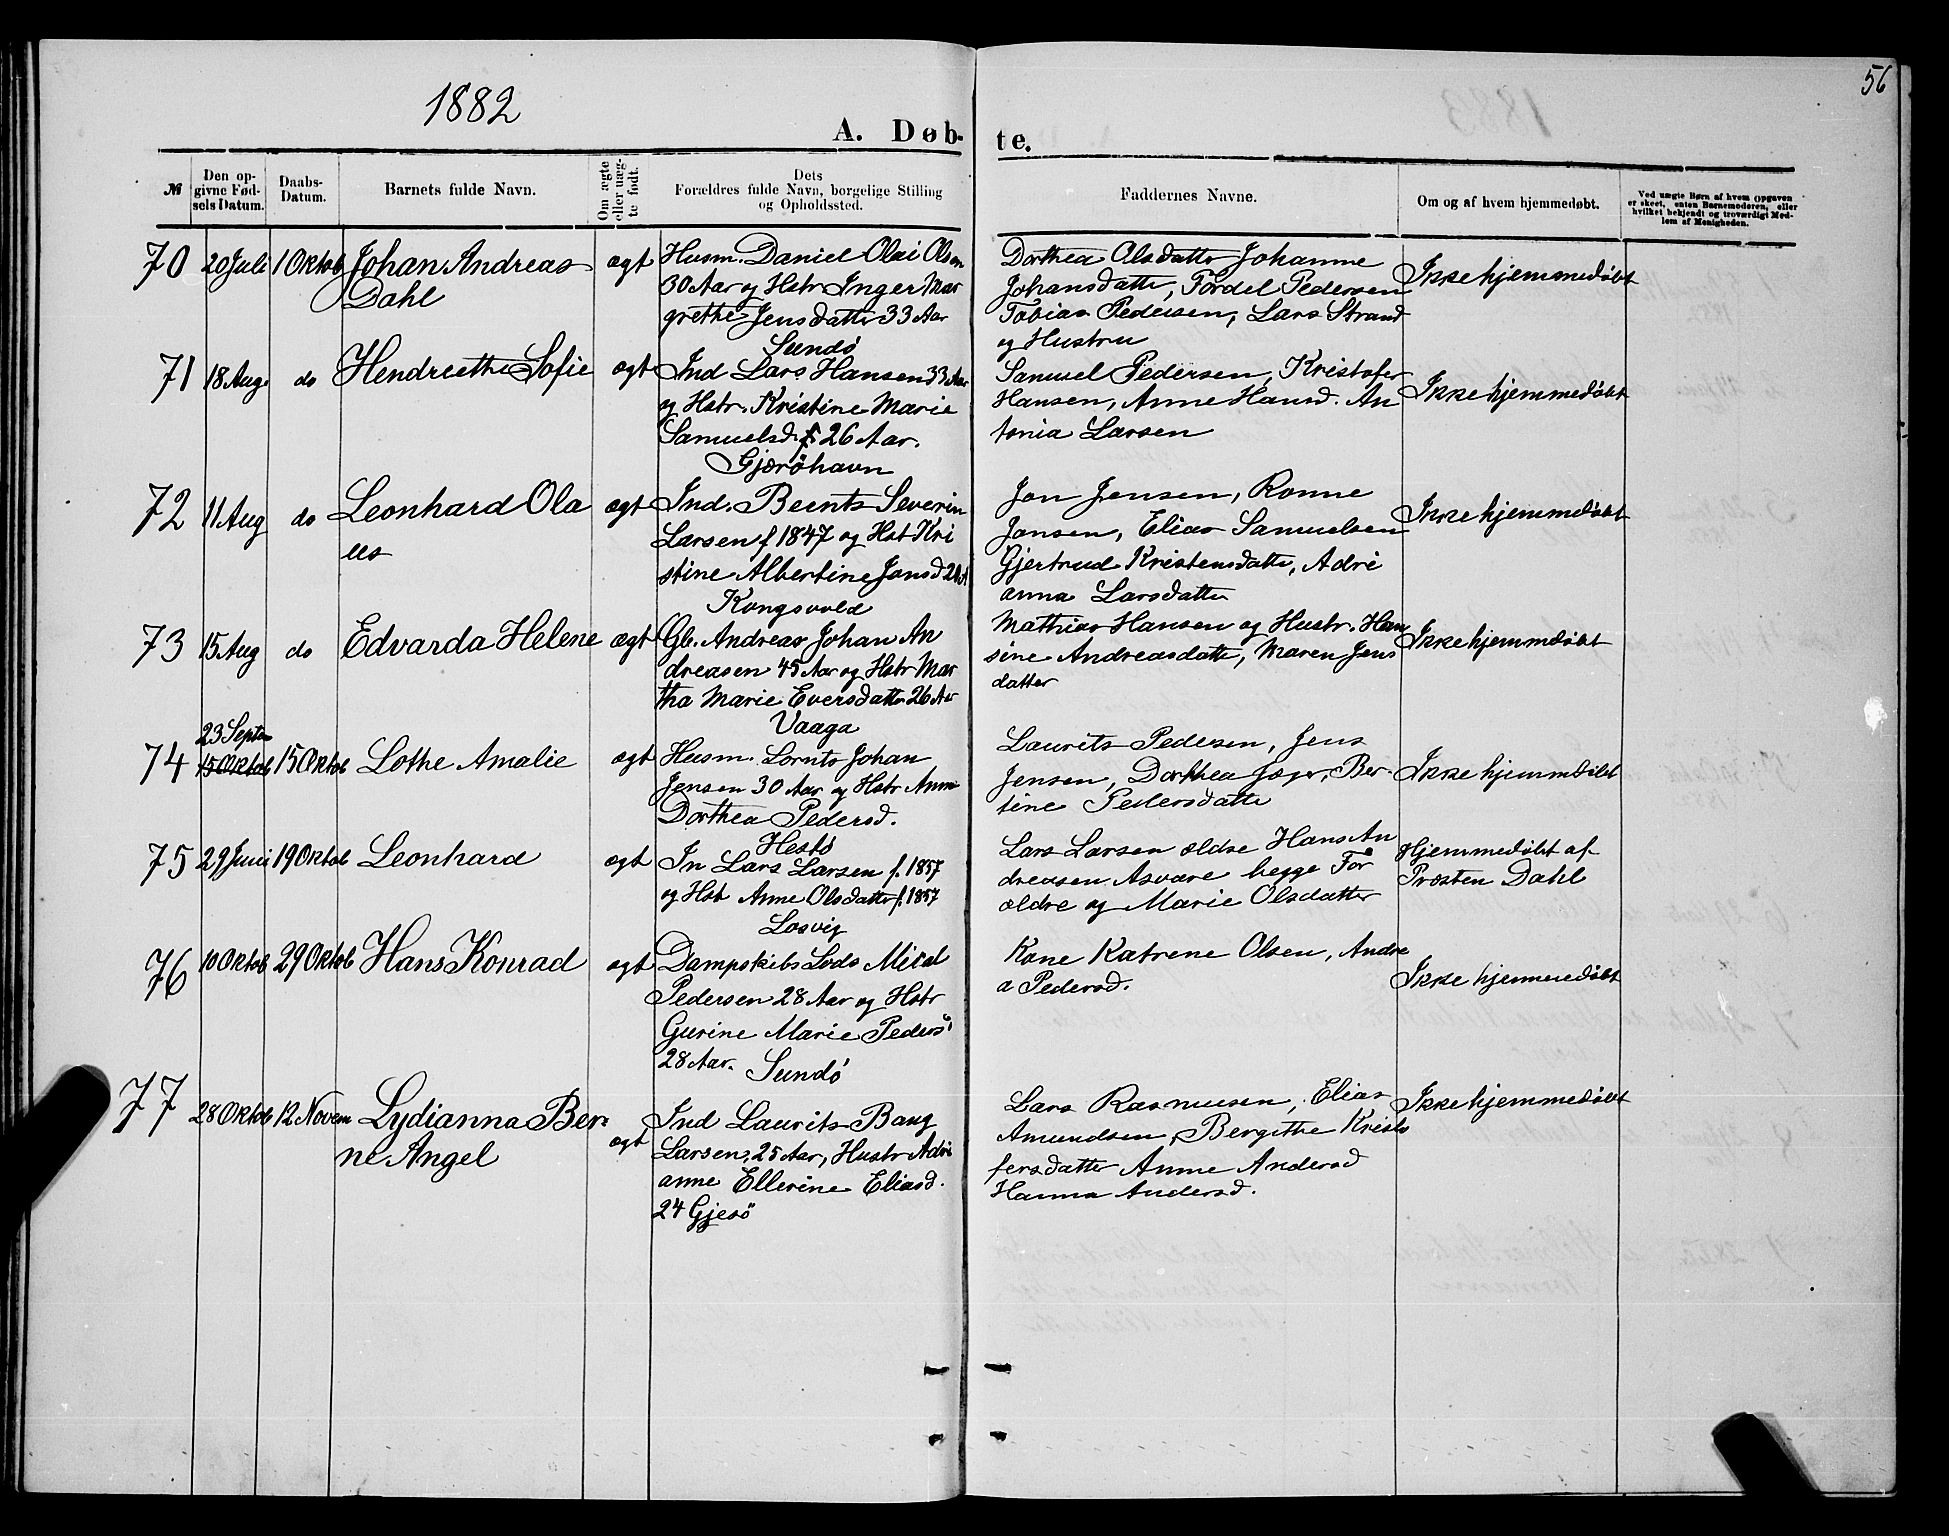 1882
56
A. Døb-
te.
№
Den op-
givne Fød-
sels Datum.
Daabs-
Datum.
Barnets fulde Navn.
Om ægte
eller uæg-
te født.
Dets
Forældres fulde Navn, borgelige Stilling
og Opholdssted.
Faddernes Navne.
Om og af hvem hjemmedøbt.
Ved uægte Børn af hvem Opgaven
er skeet, enten Barnemoderen, eller
hvilket bekjendt og troværdigt Med-
lem af Menigheden.
70
20 Juli
1 Oktob
Johan Andreas
Dahl
ægt
Husm. Daniel Olai Olsen
30 Aar og Hstr Inger Mar
grethe Jensdatter 33 Aar
Sundö
Dorthea Olsdatter Johanne
Johansdatter, Fordel Pedersen
Tobias Pedersen, Lars Strand
og Hustru
Ikke hjemmedøbt
71
18 Aug.
do
Hendreethe Sofie
ægt
Ind Lars Hansen 33 Aar
og Hstr. Kristine Marie
Samuelsd 26 Aar.
Gjæröhavn
Samuel Pedersen, Kristofer
Hansen, Anne Hansd. An
tonia Larsen
Ikke hjemmedøbt
72
11 Aug
do
Leonhard Ola
us
ægt
Ind. Beents Severin
Larsen f 1847 og Hst Kri
stine Albertine Jonsd
Kongsvold
Jon Jensen, Ronne
Jansen, Elias Samuelsen
Gjertrud Kristensdatter, Adri
anna Larsdatter
Ikke hjemmedøbt
73
15 Aug
do
Edvarda Helene
ægt
Gb. Andreas Johan An
dreasen 45 Aar og Hstr Mar
tha Marie Eversdatter 26 Aar
Vaaga
Mathias Hansen og Hustr. Han
sine Andreasdatter, Maren Jens
datter
Ikke hjemmedøbt
74
23 Septe
15 Oktob
15 Oktob
Lothe Amalie
ægt
Husm. Lornts Johan
Jensen 30 Aar og Hstr Anne
Dorthea Pedersd.
Hestö
Laurits Pedersen, Jens
Jensen, Dorthea Jæger, Ber-
tine Pedersdatter
Ikke hjemmedøbt
75
29 Juni
19 Oktob
Leonhard
ægt
In Lars Larsen f. 1857
og Hst Anne Olsdatter f. 1857
Losvig
Lars Larsen ældre Hans An
dreasen Asvære begge For
ældre og Marie Olsdatter
Hjemmedøbt af
Præsten Dahl
76
10 Oktob
29 Oktob
Hans Konrad
ægt
Dampskibs Lods Mikal
Pedersen 28 Aar og Hstr
Gurine Marie Peders
28 Aar. Sundö
Kone Katrene Olsen, Andre
a Pedersd.
Ikke hjemmedøbt
77
28 Oktob
12 Novem
Lydianna Ber-
ne Angel
ægt
Ind Laurits Bang
Larsen, 25 Aar, Hustr Adri
anne Ellerine Eliasd.
24 Gjesö
Lars Rasmusen, Elias
Amundsen, Bergithe Kristo
fersdatter Anne Andersd
Hanna Andersd.
Ikke hjemmedøbt